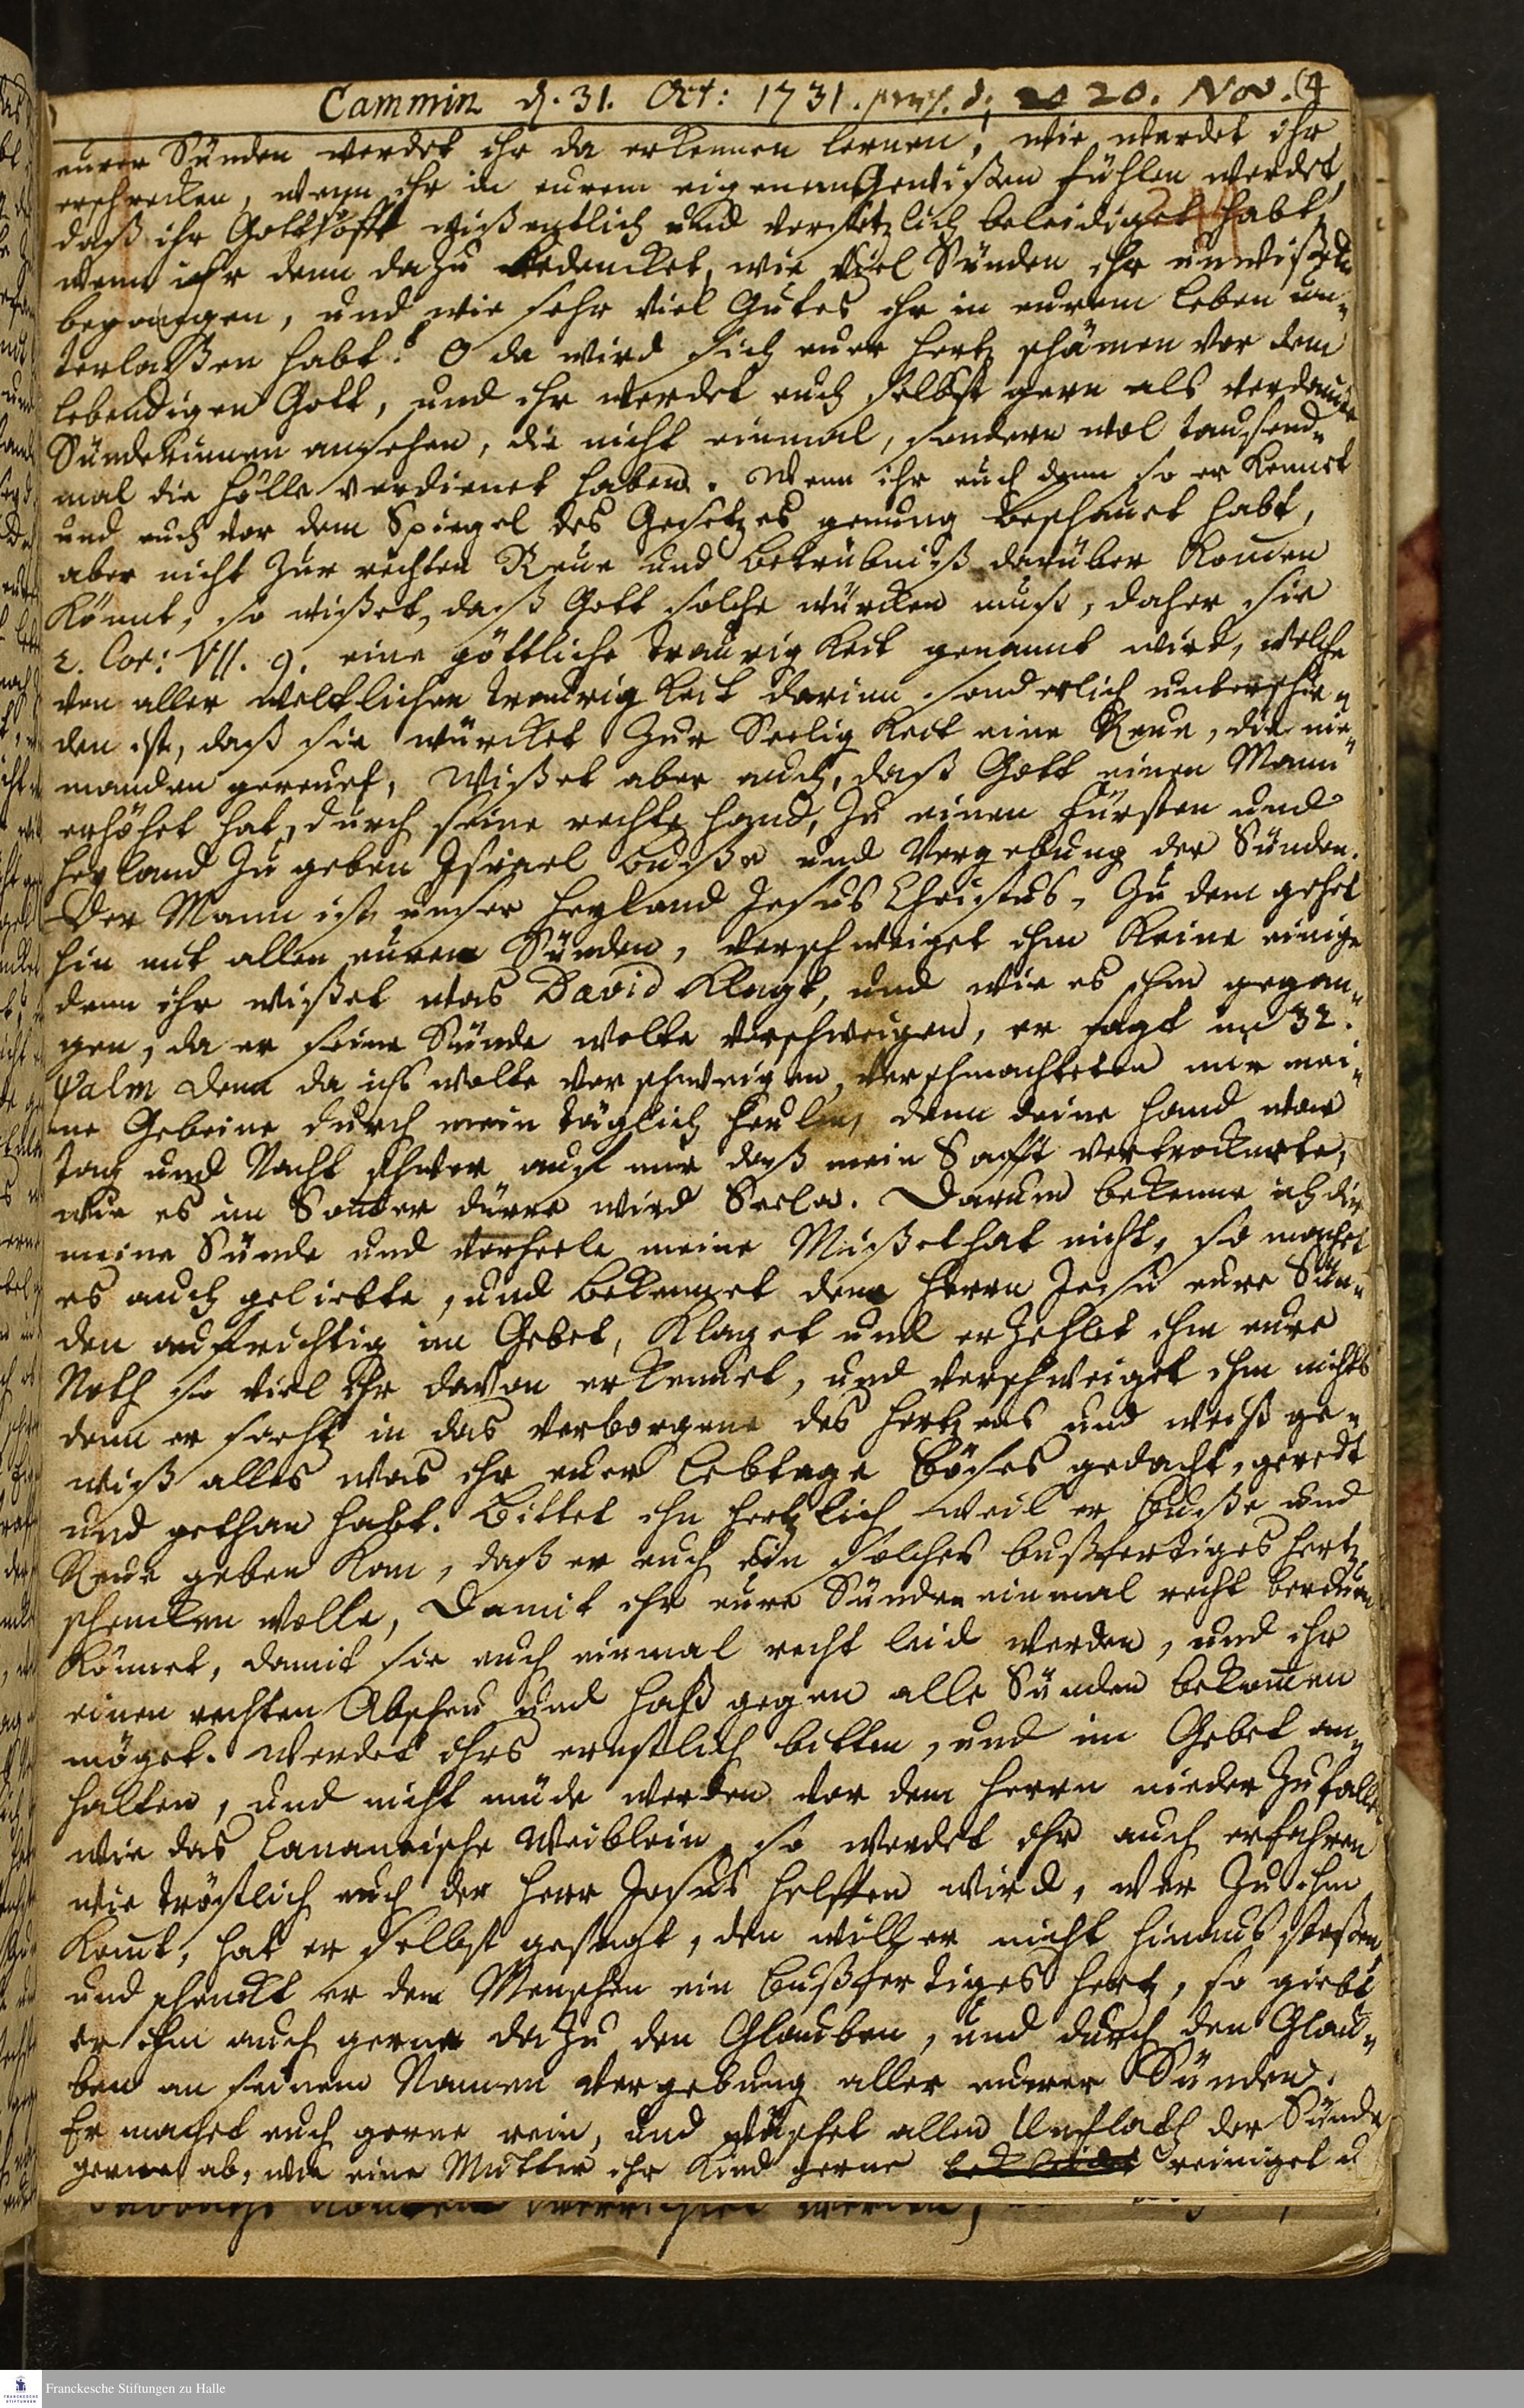 Cammin d. 31. Oct: 1731. præs. d. 20. Nov. (4
eurer Sünden werdet ihr da erkennen lernen, wie werdet ihr
erschrecken, wenn ihr in eurem eigenem Gewißen fühlen werdet,
daß ihr Gott so offt wißentlich und versetzlich beleidiget habt,
wenn ihr denn dazu bedencket, wie viel Sünden ihr unwißend
begangen, und wie sehr viel Gutes ihr in eurem Leben un-
terlaßen habt! O da wird sich euer Hertz schämen vor dem
lebendigen Gott, und ihr werdet euch selbst gern als verdamte
Sünderinnen ansehen, die nicht einmal, sondern wol tausend-
mal die Hölle verdienet haben. Wenn ihr euch denn so erkennet
und euch vor dem Spiegel des Gesetzes genung beschauet habt,
aber nicht zur rechten Reue und Betrübniß darüber kom̄en
könnt, so wißet, daß Gott solche würcken muß, daher sie
2. Cor: VII. 9. eine göttliche Traurigkeit genannt wird, welche
von aller weltlichen Traurigkeit darinn sonderlich unterschie-
den ist, daß sie würcket zur Seeligkeit eine Reue, die nie-
manden gereuet, Wißet aber auch, daß Gott einen Mann
erhöhet hat, durch seine rechte Hand, zu einen Fürsten und
Heyland zu geben Israel Buße und Vergebung der Sünden.
Der Mann ist unser Heyland Jesus Christus, Zu dem gehet
hin mit allen euren Sünden, verschweiget ihm keine einige
denn ihr wißet was David klagt, und wie es ihm gegan-
gen, da er seine Sünde wolte verschweigen, er sagt im 32.
Psalm Denn da ichs wolte verschweigen, verschmachteten mir mei-
ne Gebeine durch mein täglich heulen, denn deine Hand war
Tag und Nacht schwer auf mir daß mein Safft vertrocknete,
wie es im Som̄er dürre wird Sela. Darum bekenne ich dir
meine Sünde und verheele meine Mißethat nicht, so machet
es auch geliebte, und bekennet dem Herrn Jesu eure Sün-
den aufrichtig im Gebet, klaget und erzehlet ihm eure
Noth so viel ihr davon erkennet, und verschweiget ihm nichts
denn er sieht in das verborgene des Hertzens und weiß ge-
wiß alles was ihr euer Lebtage Böses gedacht, geredt
und gethan habt. Bittet ihn hertzlich weil er Buße und
Reue geben kan, daß er euch ein solches bußfertiges Hertz
schencken wolle, Damit ihr eure Sünden einmal recht bereuen
könnet, damit sie euch einmal recht leid werden, und ihr
einen rechten Abscheu und Haß gegen alle Sünden bekom̄en
möget. Werdet ihrs ernstlich bitten, und im Gebet an-
halten, und nicht müde werden vor dem Herrn nieder zufallen
wie das Cananeische Weiblein, so werdet ihr auch erfahren
wie tröstlich euch der Herr Jesus helffen wird, wer zu ihm
kom̄t, hat er selbst gesagt, den will er nicht hinaus stoßen,
und schenckt er dem Menschen ein bußfertiges Hertz, so giebt
er ihm auch gerne dazu den Glauben, und durch den Glau-
ben an seinem Namen Vergebung aller eurer Sünden.
Er machet euch gerne rein, und wäschet allen Unflath der Sünde
gerne ab, wie eine Mutter ihr Kind gerne reiniget u
Franckesche Stiftungen zu Halle